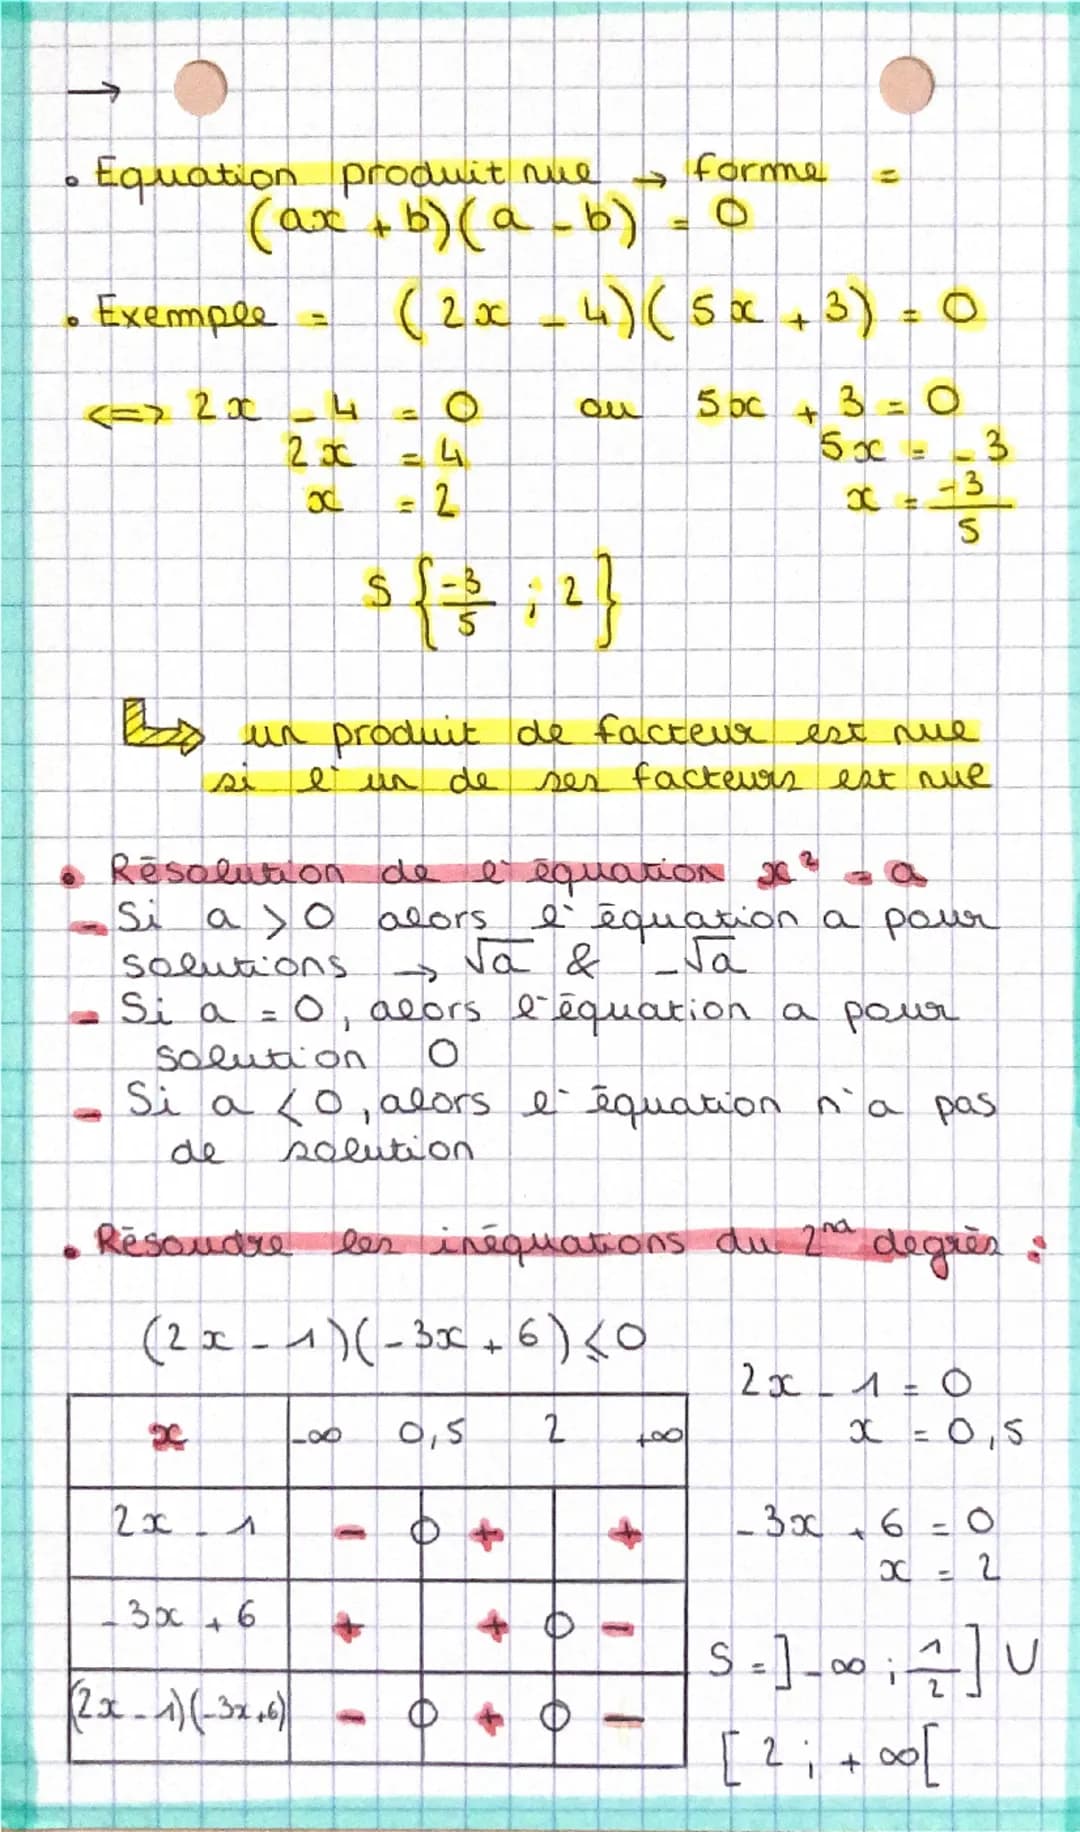 →
• Equation produit nul → forme =
(ax + b)(a - b) = 0
• Exemple = (2x - 4)(5x + 3) = 0
<=> 2x - 4 = 0 ou 5x + 3 = 0
2x = 4 5x = -3
x = 2 x = -3/5
S {-3/5 ; 2}
un produit de facteur est nul
si l'un de ses facteurs est nul
• Résolution de l'équation x² = a
- Si a > 0 alors l'équation a pour
solutions → √a & -√a
- Si a = 0, alors l'équation a pour
solution 0
- Si a < 0, alors l'équation n'a pas
de solution
• Résoudre les inéquations du 2nd degrès :
(2x - 1)(-3x + 6) ⩽ 0
2x - 1 = 0
x = 0,5
x -∞ 0,5 2 +∞
2x - 1 - 0 + +
-3x + 6 = 0
x = 2
-3x + 6 + + 0 -
(2x - 1)(-3x + 6) - 0 + 0 -
S = ]-∞ ; 1/2] U
[2 ; +∞[